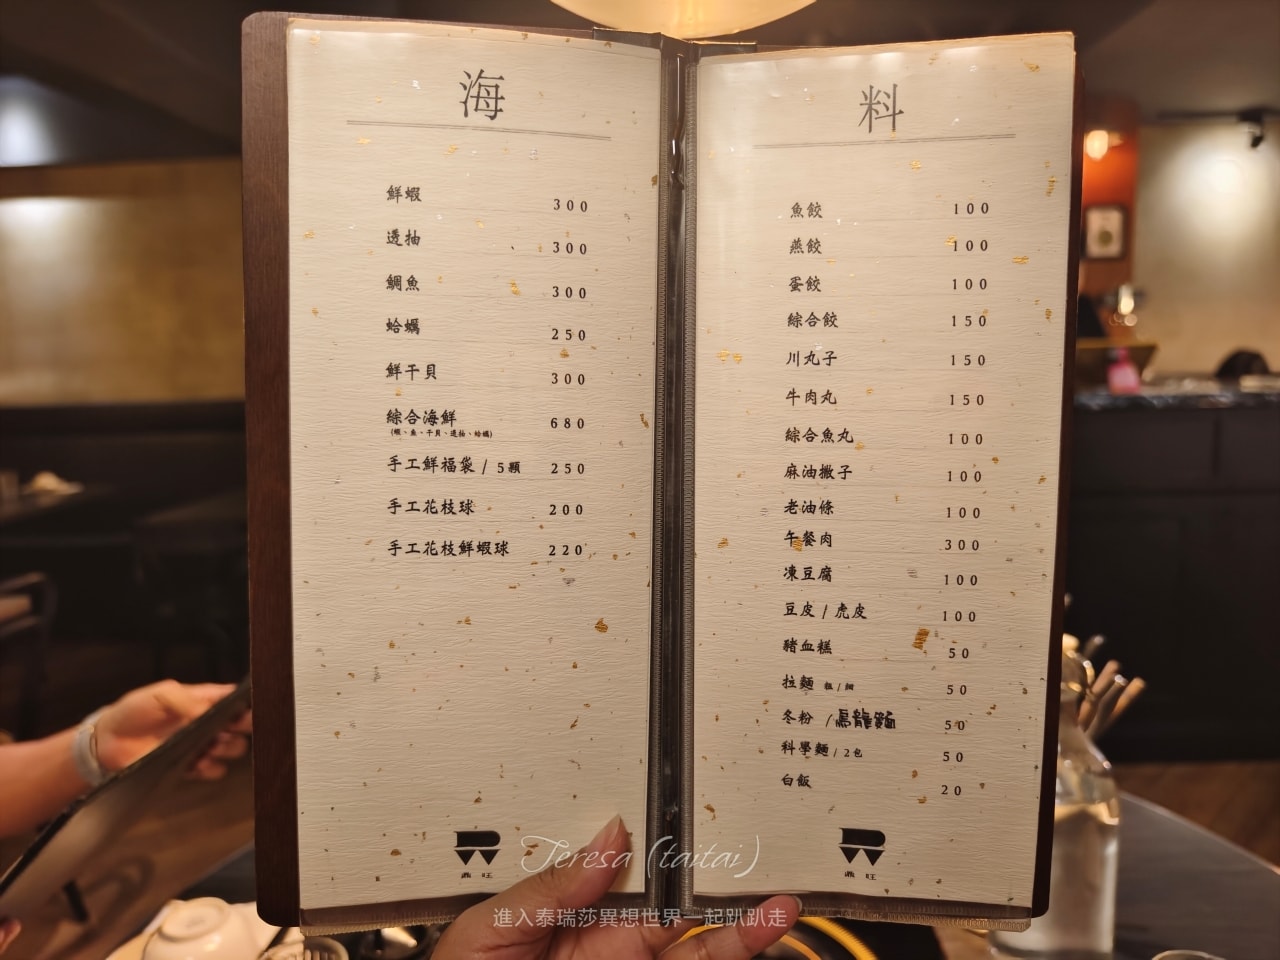 海
鮮蝦 300
透抽 300
鯛魚 300
蛤蠣 250
鮮干貝 300
綜合海鮮 680
(蝦、魚、干貝、透抽、蛤蠣)
手工鮮福袋 / 5顆 250
手工花枝球 200
手工花枝鮮蝦球 220
鼎旺
料
魚餃 100
燕餃 100
蛋餃 100
綜合餃 150
川丸子 150
牛肉丸 150
綜合魚丸 100
麻油撒子 100
老油條 100
午餐肉 300
凍豆腐 100
豆皮 / 虎皮 100
豬血糕 50
拉麵 粗 / 細 50
冬粉 /烏龍麵 50
科學麵 / 2包 50
白飯 20
鼎旺
Teresa (taitai)
進入泰瑞莎異想世界一起趴趴走